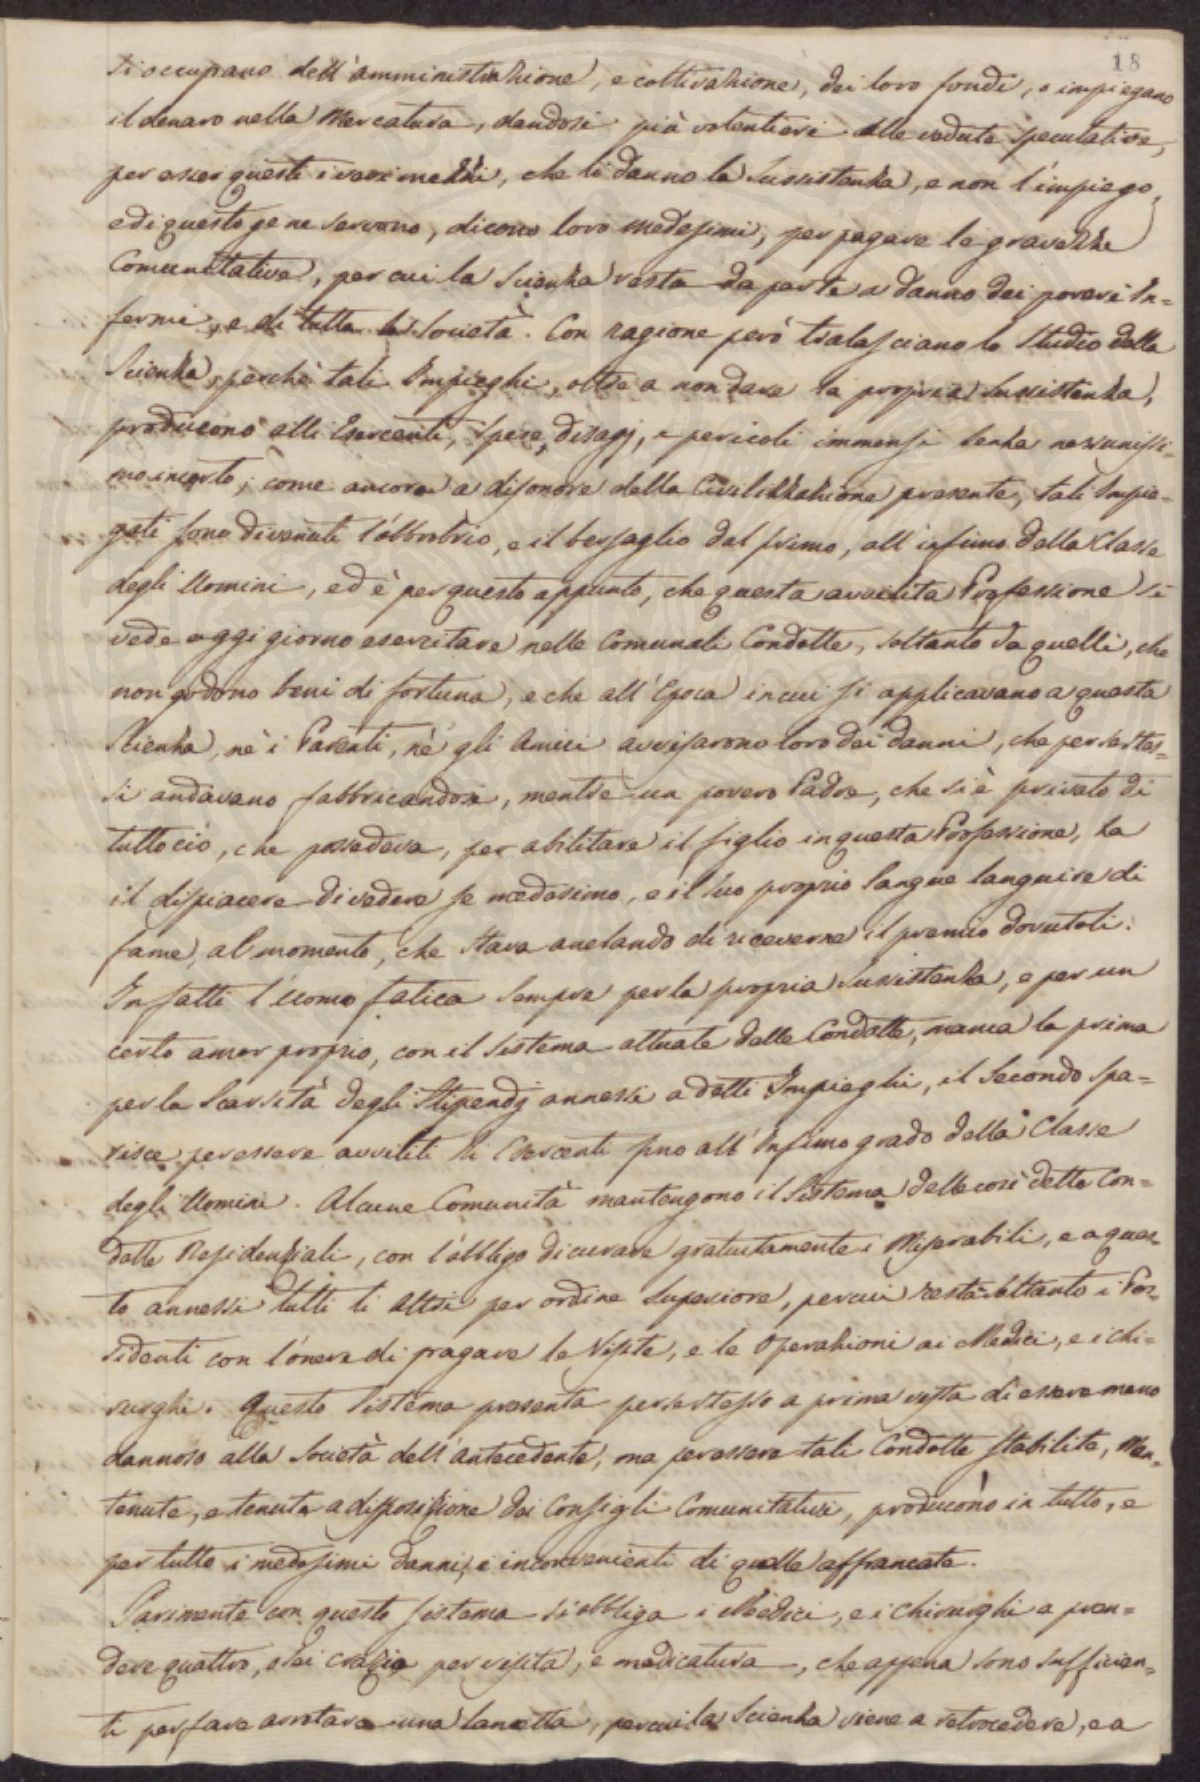 18
si occupano dell'amministrazione, e coltivazione, dei loro fondi, o impiegano
il denaro nella Mercatura, dandosi più volentieri alle vedute speculative,
per esser questi i veri mezzi, che li danno la Sussistenza, e non l'impiego,
e di questo se ne servono, dicono loro medesimi, per pagare le gravezze
Comunitative, per cui la Scienza resta da parte a danno dei poveri In=
fermi, e di tutta la Società. Con ragione però tralasciano lo Studio della
Scienza, perchè tali Impieghi, oltre a non dare la propria Sussistenza,
producono alli Esercenti, spese, disagj, e pericoli immensi senza nessunissi=
mo incerto; come ancora a disonore della Civilizzazione presente, tali Impie=
gati sono divenuti l'obbrobrio, e il bersaglio dal primo, all'infimo della Classe
degli Uomini, ed è per questo appunto, che questa avvilita Professione si
vede oggi giorno esercitare nelle Comunali Condotte, soltanto da quelli, che
non godono beni di fortuna, e che all'Epoca in cui si applicavano a questa
Scienza, nè i Parenti, nè gli Amici avvisarono loro dei danni, che per se stes=
si andavano fabbricandosi, mentre un povero Padre, che si è privato di
tutto ciò, che possedeva, per abilitare il figlio in questa Professione, ha
il dispiacere di vedere se medesimo, e il suo proprio Sangue languire di
fame, al momento, che stava anelando di riceverne il premio dovutoli.
Infatti l'uomo fatica sempre per la propria Sussistenza, e per un
certo amor proprio, con il Sistema attuale delle Condotte, manca la prima
per la Scarsità degli Stipendj annessi a detti Impieghi, il Secondo spa=
risce per essere avviliti li Esercenti fino all'Infimo grado della Classe
degli Uomini. Alcune Comunità mantengono il Sistema delle così dette Con=
dotte Residenziali, con l'obbligo di curare gratuitamente i Miserabili, e a ques
to annessi tutti li altri per ordine Superiore, per cui resta soltanto i Pos=
sidenti con l'onere di pagare le Visite, e le Operazioni ai Medici, e i Chi=
rurghi. Questo Sistema presenta per se stesso a prima vista di essere meno
dannoso alla Società dell'antecedente, ma per essere tali Condotte stabilite, Man=
tenute, e tenute a disposizione dei Consigli Comunitativi, producono in tutto, e
per tutto i medesimi danni, e inconvenienti di quelle affrancate.
Parimente con questo sistema si obbliga i Medici, e i Chirurghi a pren=
dere quattro, o sei crazie per visita, e medicatura, che appena sono sufficien=
ti per fare arrotare una lancetta, per cui la Scienza viene a retrocedere, e a